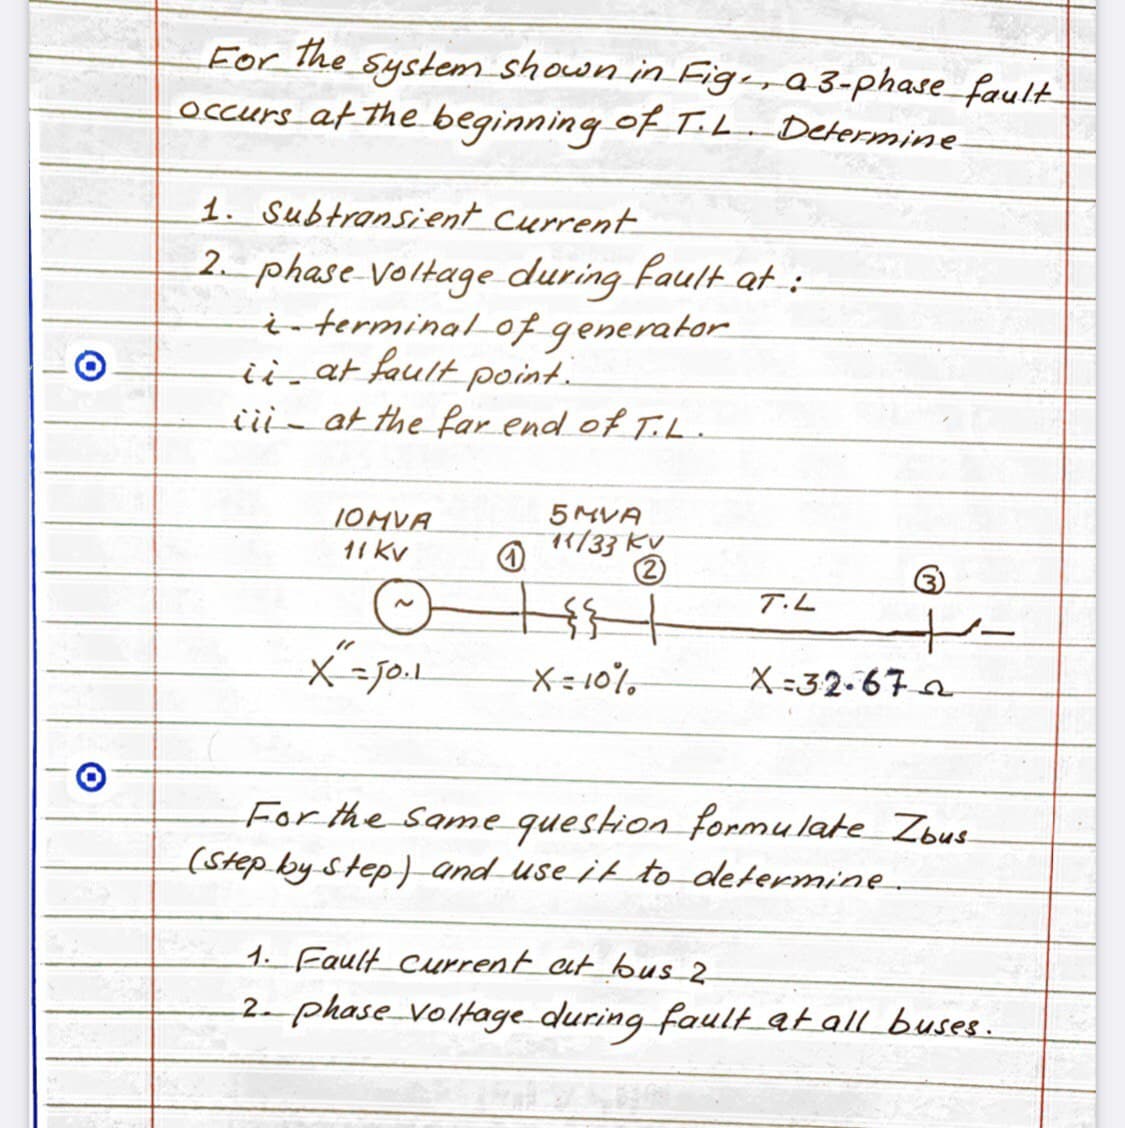 For the system shown in Fig., a 3-phase fault
occurs at the beginning of T.L. Determine
1. Subtransient Current
2. phase Voltage during fault at :
i- terminal of generator
ii- at fault point.
iii- at the far end of T.L.
10MVA
11 KV
5MVA
11/33 KV
1
2
3
~
T.L
X"=J0.1
X=10%
X=32.67 Ω
For the Same question formulate Zbus
(Step by step) and use it to determine.
1. Fault current at bus 2
2. phase voltage during fault at all buses.